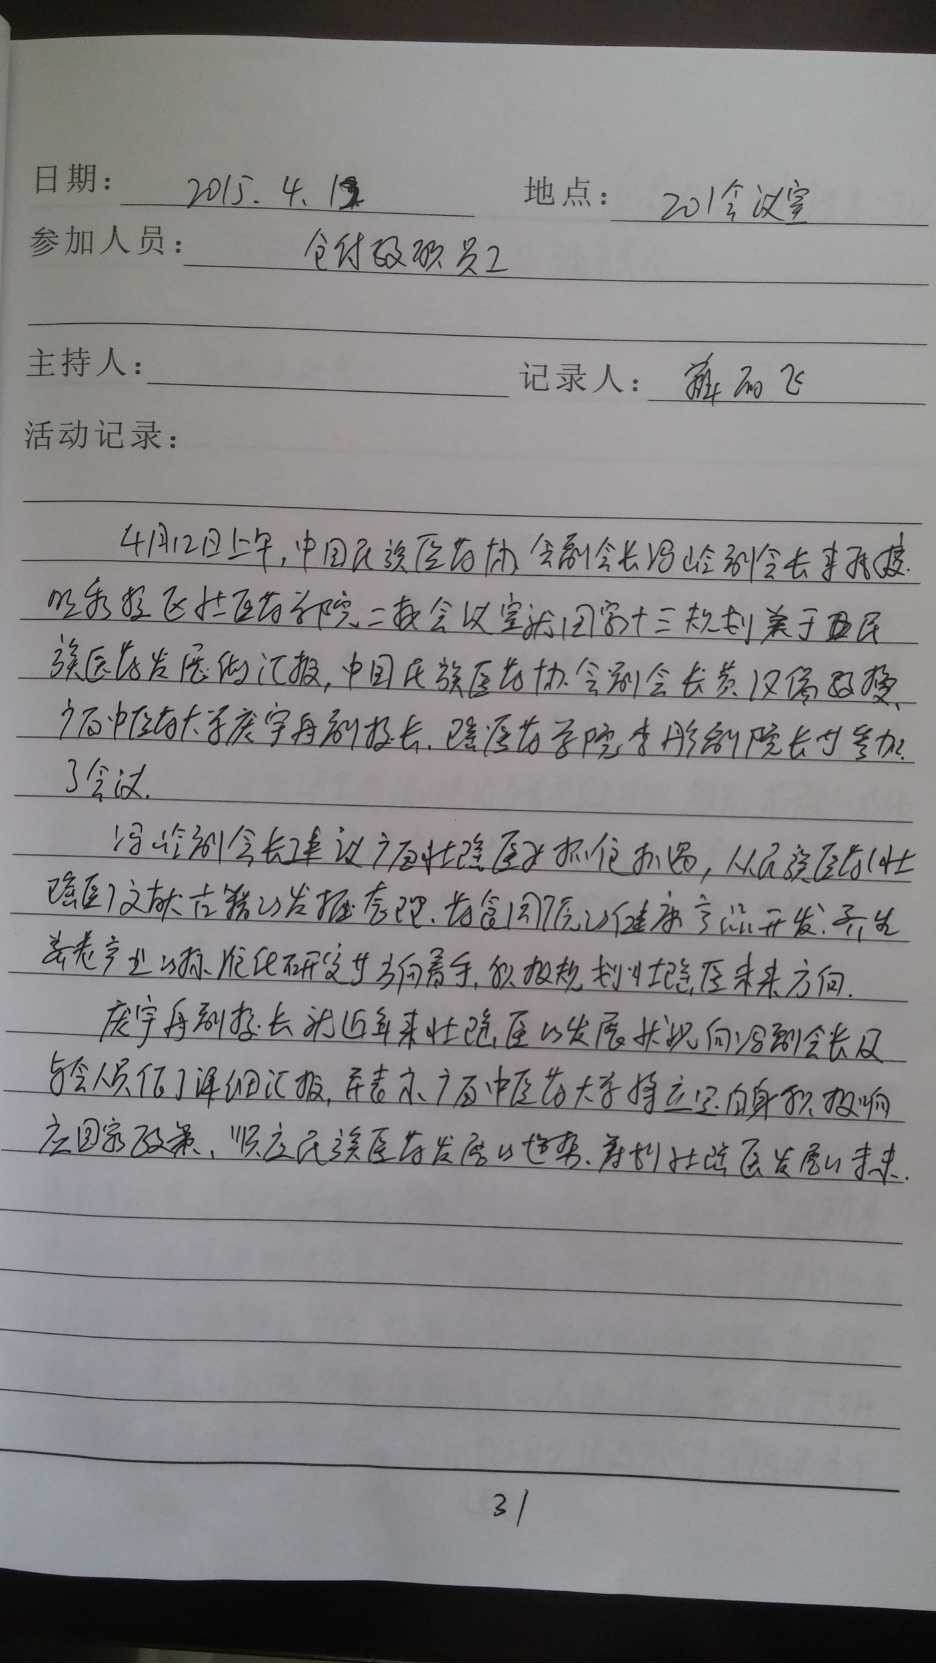 日期： 2015.4.12 地点： 201会议室
参加人员： 全体教职员工
主持人： 记录人： 飞
活动记录：
4月12日上午，中国民族医药协会副会长冯岭副会长来我校
明秀校区壮医药学院二楼会议室就国家十三规划关于民
族医药发展做汇报，中国民族医药协会副会长黄汉儒教授、
广西中医药大学庞宇舟副校长、瑶医药学院李彤副院长等参加
了会议.
冯岭副会长建议广西壮瑶医要抓住机遇，从民族医药（壮
瑶医）文献古籍的发掘整理、药食同源的健康产品开发、养生
养老产业的标准化研究等方向着手，积极规划壮瑶医未来方向.
庞宇舟副校长就近年来壮瑶医的发展状况向冯副会长及
与会人员作了详细汇报，并表示广西中医药大学将立足自身积极响
应国家政策、顺应民族医药发展的趋势、筹划壮瑶医发展的未来.
31